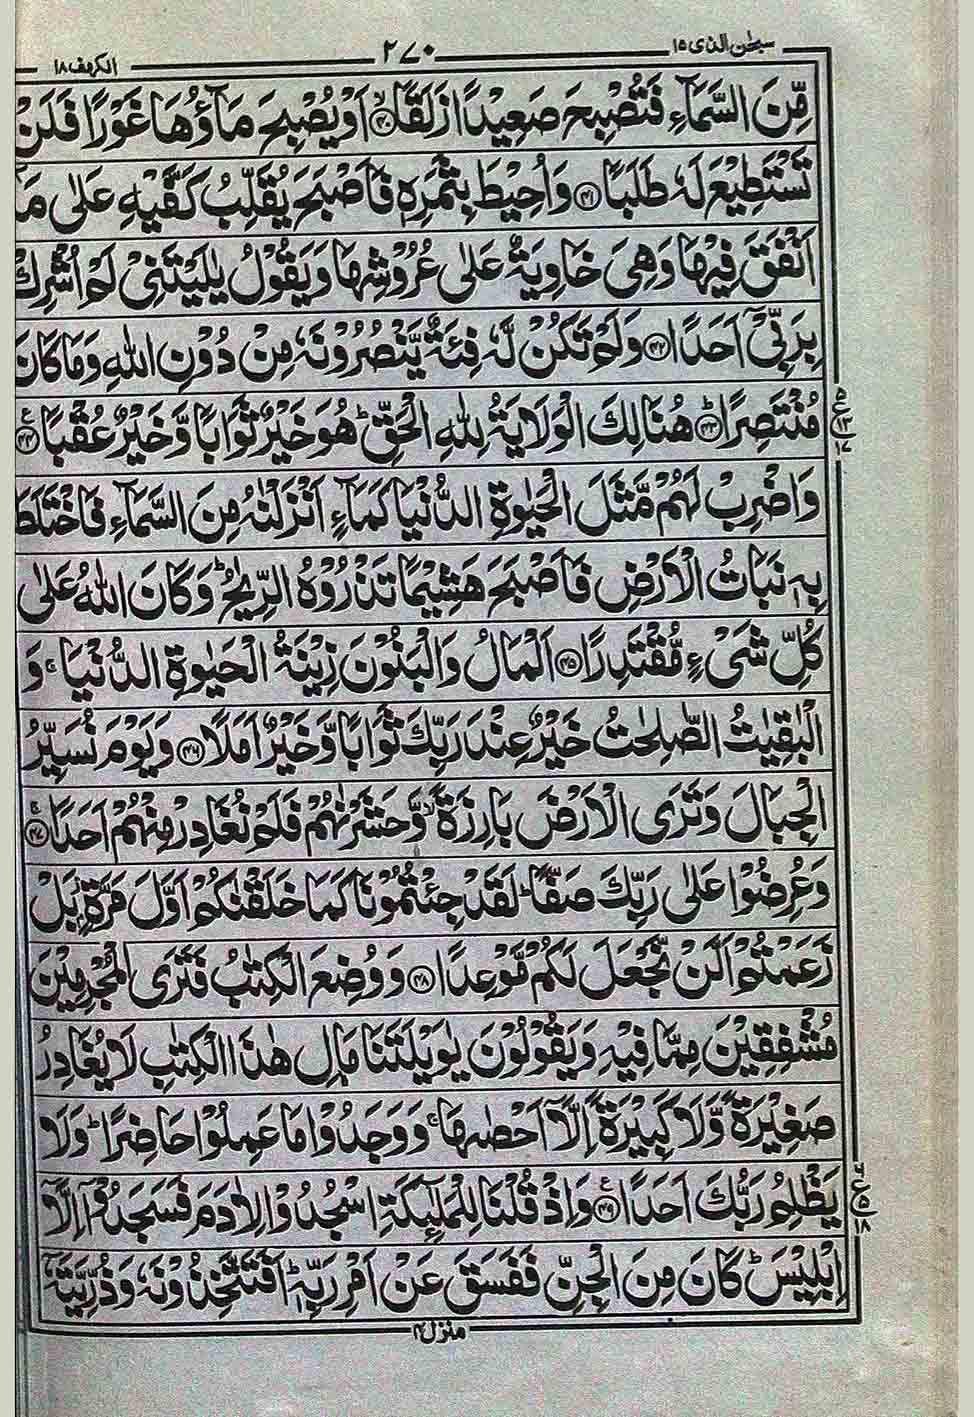 سبحٰن الذی ۱۵ ۲۷۰ الكهف ۱۸
مِّنَ السَّمَآءِ فَتُصْبِحَ صَعِيْدًا زَلَقًا ۙ﴿۴۰﴾ اَوْ يُصْبِحَ مَآؤُهَا غَوْرًا فَلَنْ
تَسْتَطِيْعَ لَهٗ طَلَبًا ﴿۴۱﴾ وَاُحِيْطَ بِثَمَرِهٖ فَاَصْبَحَ يُقَلِّبُ كَفَّيْهِ عَلٰى مَاۤ
اَنْفَقَ فِيْهَا وَهِىَ خَاوِيَةٌ عَلٰى عُرُوْشِهَا وَيَقُوْلُ يٰلَيْتَنِىْ لَمْ اُشْرِكْ
بِرَبِّىْۤ اَحَدًا ﴿۴۲﴾ وَلَمْ تَكُنْ لَّهٗ فِئَةٌ يَّنْصُرُوْنَهٗ مِنْ دُوْنِ اللّٰهِ وَمَا كَانَ
مُنْتَصِرًا ؕ﴿۴۳﴾ هُنَالِكَ الْوَلَايَةُ لِلّٰهِ الْحَقِّ ؕ هُوَ خَيْرٌ ثَوَابًا وَّخَيْرٌ عُقْبًا ﴿۴۴﴾ ع
وَاضْرِبْ لَهُمْ مَّثَلَ الْحَيٰوةِ الدُّنْيَا كَمَآءٍ اَنْزَلْنٰهُ مِنَ السَّمَآءِ فَاخْتَلَطَ
بِهٖ نَبَاتُ الْاَرْضِ فَاَصْبَحَ هَشِيْمًا تَذْرُوْهُ الرِّيٰحُ ؕ وَكَانَ اللّٰهُ عَلٰى
كُلِّ شَىْءٍ مُّقْتَدِرًا ﴿۴۵﴾ اَلْمَالُ وَالْبَنُوْنَ زِيْنَةُ الْحَيٰوةِ الدُّنْيَا ۚ وَ
الْبٰقِيٰتُ الصّٰلِحٰتُ خَيْرٌ عِنْدَ رَبِّكَ ثَوَابًا وَّخَيْرٌ اَمَلًا ﴿۴۶﴾ وَيَوْمَ نُسَيِّرُ
الْجِبَالَ وَتَرَى الْاَرْضَ بَارِزَةً ۙ وَّحَشَرْنٰهُمْ فَلَمْ نُغَادِرْ مِنْهُمْ اَحَدًا ۚ﴿۴۷﴾
وَعُرِضُوْا عَلٰى رَبِّكَ صَفًّا ؕ لَقَدْ جِئْتُمُوْنَا كَمَا خَلَقْنٰكُمْ اَوَّلَ مَرَّةٍۭ ؗ بَلْ
زَعَمْتُمْ اَلَّنْ نَّجْعَلَ لَكُمْ مَّوْعِدًا ﴿۴۸﴾ وَوُضِعَ الْكِتٰبُ فَتَرَى الْمُجْرِمِيْنَ
مُشْفِقِيْنَ مِمَّا فِيْهِ وَيَقُوْلُوْنَ يٰوَيْلَتَنَا مَالِ هٰذَا الْكِتٰبِ لَا يُغَادِرُ
صَغِيْرَةً وَّلَا كَبِيْرَةً اِلَّاۤ اَحْصٰىهَا ۚ وَوَجَدُوْا مَا عَمِلُوْا حَاضِرًا ؕ وَلَا
يَظْلِمُ رَبُّكَ اَحَدًا ﴿۴۹﴾ ع وَاِذْ قُلْنَا لِلْمَلٰٓئِكَةِ اسْجُدُوْا لِاٰدَمَ فَسَجَدُوْۤا اِلَّاۤ
اِبْلِيْسَ ؕ كَانَ مِنَ الْجِنِّ فَفَسَقَ عَنْ اَمْرِ رَبِّهٖ ؕ اَفَتَتَّخِذُوْنَهٗ وَذُرِّيَّتَهٗۤ
منزل ۴